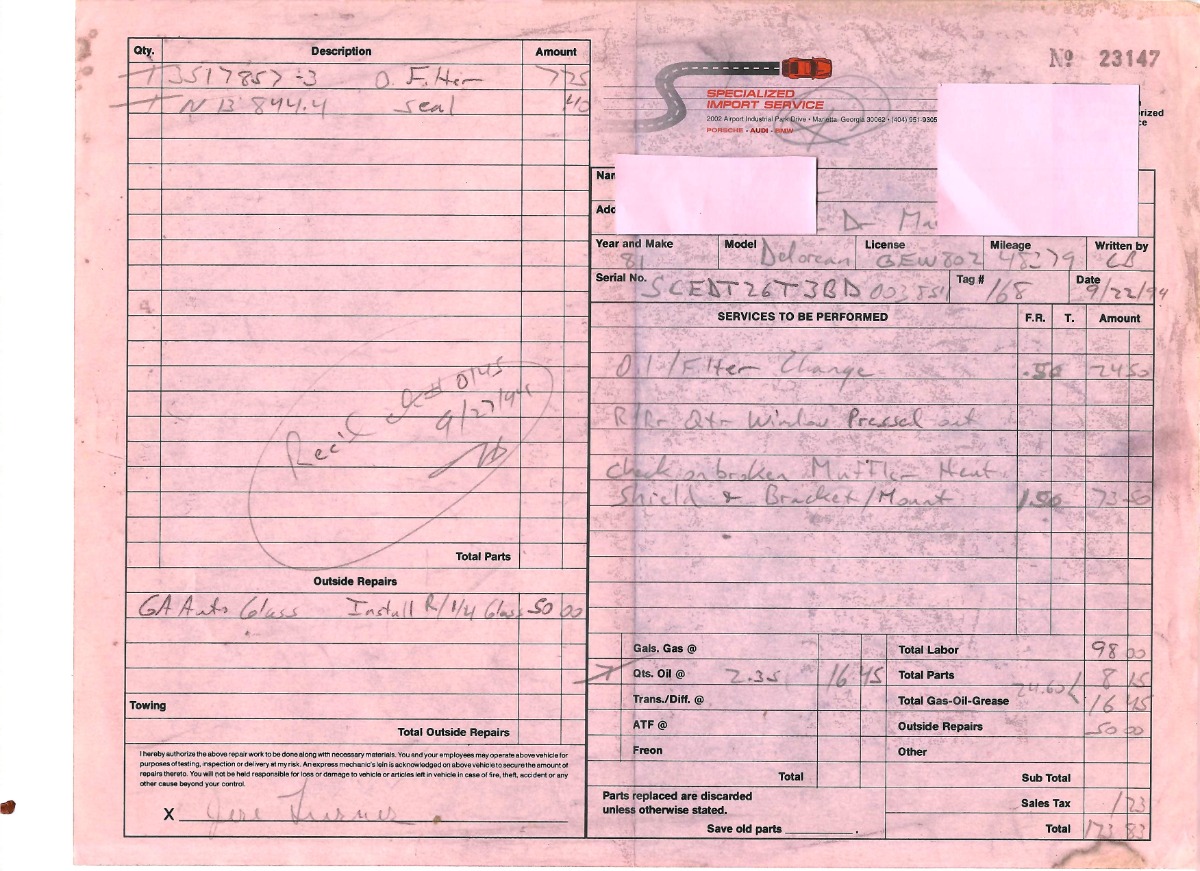 Qty. Description Amount
1 3517857-3 O. Filter 7 75
1 N 13 844.4 Seal .40
Recv'd 0145
9/27/94
Total Parts
Outside Repairs
GA Auto Glass Install R/1/4 Glass 50 00
Towing
Total Outside Repairs
I hereby authorize the above repair work to be done along with necessary materials. You and your employees may operate above vehicle for
purposes of testing, inspection or delivery at my risk. An express mechanic's lein is acknowledged on above vehicle to secure the amount of
repairs thereto. You will not be held responsible for loss or damage to vehicle or articles left in vehicle in case of fire, theft, accident or any
other cause beyond your control.
X Jere Turner
Nº 23147
SPECIALIZED
IMPORT SERVICE
2002 Airport Industrial Park Drive • Marietta, Georgia 30062 • (404) 951-9305
PORSCHE • AUDI • BMW
Year and Make Model License Mileage Written by
81 Delorean GEW802 48279 CB
Serial No. SCEDT26T3BD 003851 Tag # 168 Date 9/22/94
SERVICES TO BE PERFORMED F.R. T. Amount
Oil/Filter Change .50 24 50
R/Rr Qtr Window Pressed out
Check on broken Muffler Heat
Shield & Bracket/Mount 1.50 73 50
Gals. Gas @
Qts. Oil @ 2.35 16 45
Trans./Diff. @
ATF @
Freon
Total
Total Labor 98 00
Total Parts 8 15
24.60
Total Gas-Oil-Grease 16 45
Outside Repairs 50 00
Other
Sub Total
Sales Tax 1 23
Total 173 83
Parts replaced are discarded
unless otherwise stated.
Save old parts